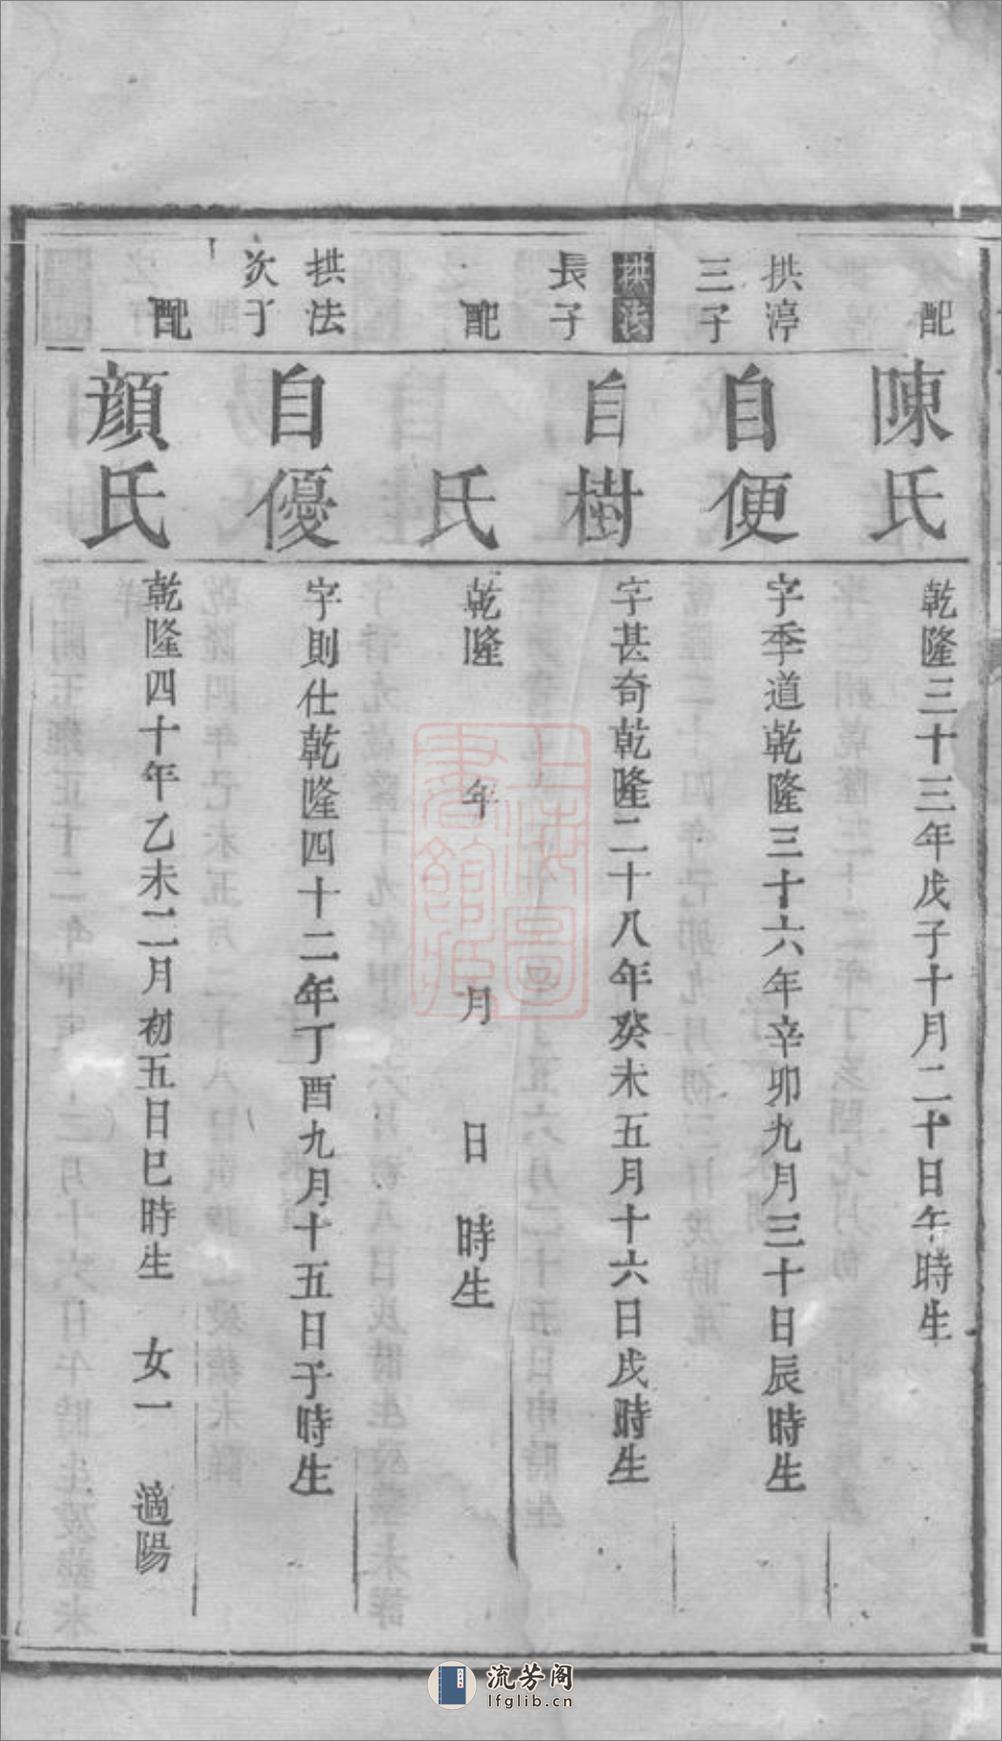 配
陳氏
乾隆三十三年戊子十月二十日午時生
拱渟
三子
自便
字季道乾隆三十六年辛卯九月三十日辰時生
拱法
長子
自樹
字甚奇乾隆二十八年癸未五月十六日戌時生
配
氏
乾隆 年 月 日 時生
拱法
次子
自優
字則仕乾隆四十二年丁酉九月十五日子時生
配
顏氏
乾隆四十年乙未二月初五日巳時生 女一 適陽
上海圖
書館藏
流芳阁
lfglib.cn